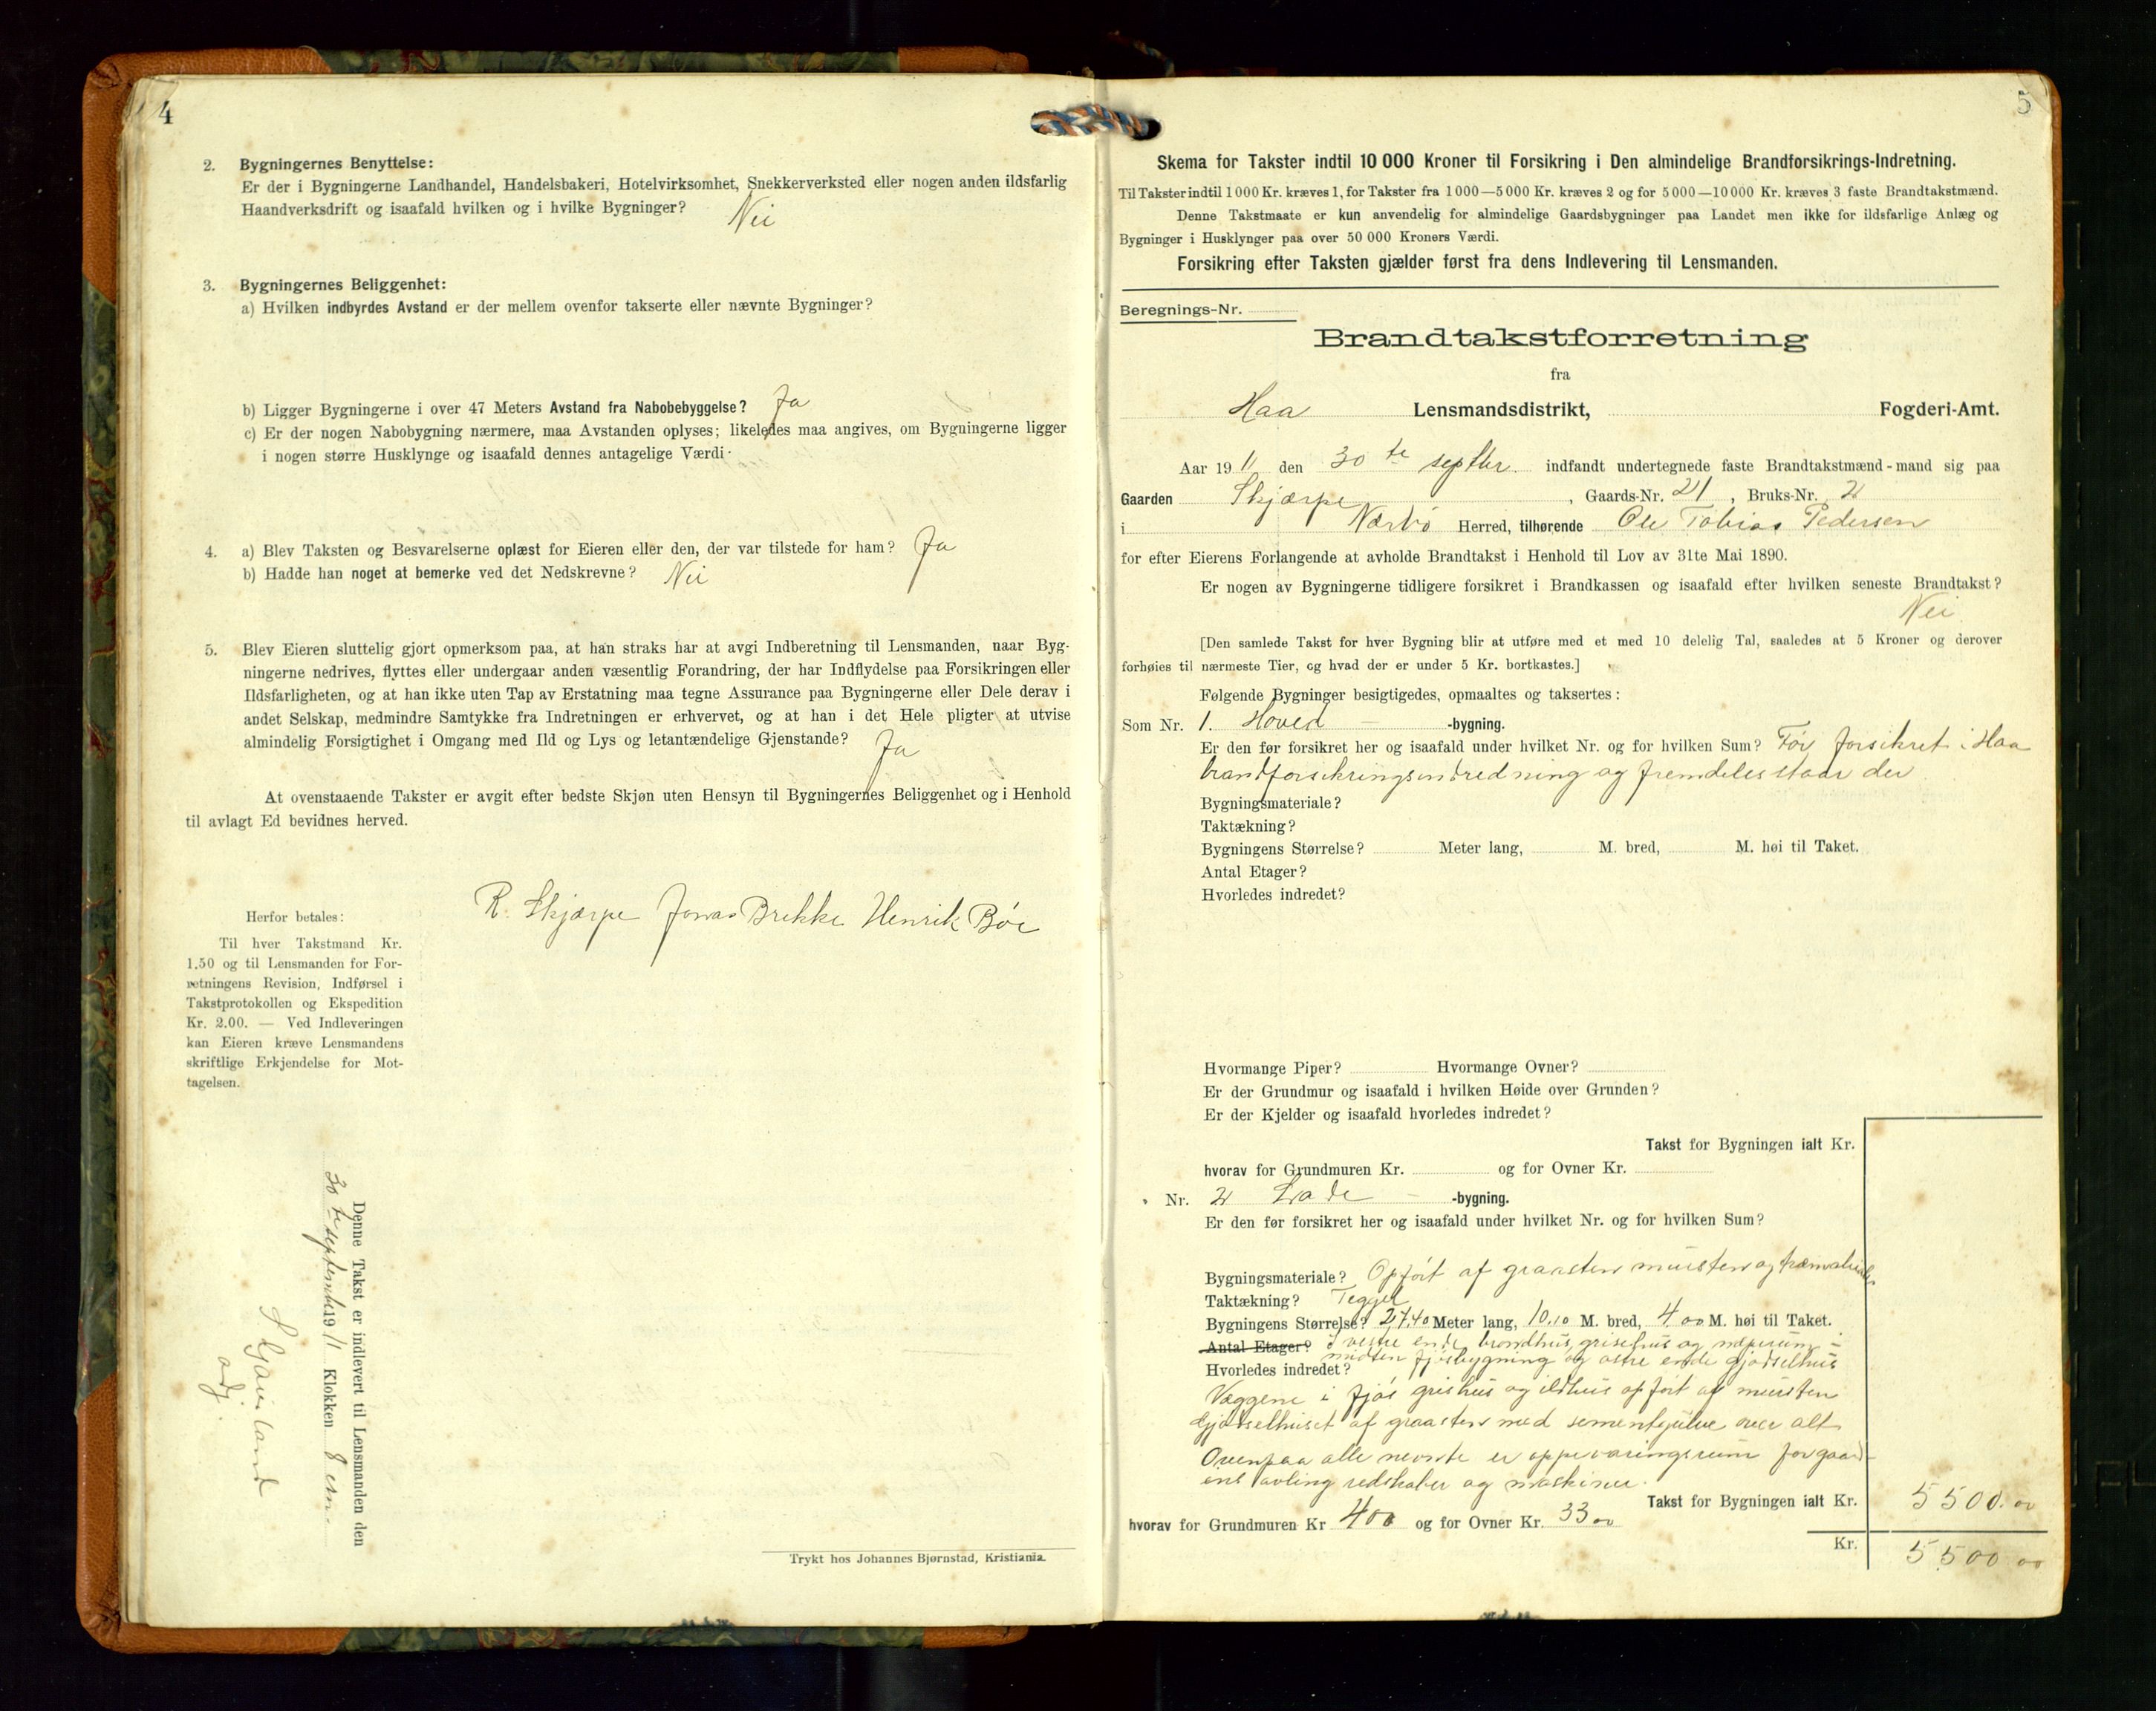 4
2. Bygningernes Benyttelse:
Er der i Bygningerne Landhandel, Handelsbakeri, Hotelvirksomhet, Snekkerverksted eller nogen anden ildsfarlig
Haandverksdrift og isaafald hvilken og i hvilke Bygninger? Nei
3. Bygningernes Beliggenhet:
a) Hvilken indbyrdes Avstand er der mellem ovenfor takserte eller nævnte Bygninger?
b) Ligger Bygningerne i over 47 Meters Avstand fra Nabobebyggelse? Ja
c) Er der nogen Nabobygning nærmere, maa Avstanden oplyses; likeledes maa angives, om Bygningerne ligger
i nogen større Husklynge og isaafald dennes antagelige Værdi.
4. a) Blev Taksten og Besvarelserne oplæst for Eieren eller den, der var tilstede for ham? Ja
b) Hadde han noget at bemerke ved det Nedskrevne? Nei
5. Blev Eieren sluttelig gjort opmerksom paa, at han straks har at avgi Indberetning til Lensmanden, naar Byg-
ningerne nedrives, flyttes eller undergaar anden væsentlig Forandring, der har Indflydelse paa Forsikringen eller
Ildsfarligheten, og at han ikke uten Tap av Erstatning maa tegne Assurance paa Bygningerne eller Dele derav i
andet Selskap, medmindre Samtykke fra Indretningen er erhvervet, og at han i det Hele pligter at utvise
almindelig Forsigtighet i Omgang med Ild og Lys og letantændelige Gjenstande? Ja
At ovenstaaende Takster er avgit efter bedste Skjøn uten Hensyn til Bygningernes Beliggenhet og i Henhold
til avlagt Ed bevidnes herved.
R. Skjærpe Jonas Brekke Henrik Böe
Herfor betales:
Til hver Takstmand Kr.
1.50 og til Lensmanden for For-
retningens Revision, Indførsel i
Takstprotokollen og Ekspedition
Kr. 2.00. — Ved Indleveringen
kan Eieren kræve Lensmandens
skriftlige Erkjendelse for Mot-
tagelsen.
Denne Takst er indlevert til Lensmanden den
30te september 1911 Klokken 8 em.
Trykt hos Johannes Bjørnstad, Kristiania.
5
Skema for Takster indtil 10 000 Kroner til Forsikring i Den almindelige Brandforsikrings-Indretning.
Til Takster indtil 1000 Kr. kræves 1, for Takster fra 1000—5000 Kr. kræves 2 og for 5000—10000 Kr. kræves 3 faste Brandtakstmænd.
Denne Takstmaate er kun anvendelig for almindelige Gaardsbygninger paa Landet men ikke for ildsfarlige Anlæg og
Bygninger i Husklynger paa over 50 000 Kroners Værdi.
Forsikring efter Taksten gjælder først fra dens Indlevering til Lensmanden.
Beregnings-Nr.
Brandtakstforretning
fra
Haa Lensmandsdistrikt, Fogderi-Amt.
Aar 1911 den 30te septbr. indfandt undertegnede faste Brandtakstmænd-mand sig paa
Gaarden Skjærpe, Gaards-Nr. 21, Bruks-Nr. 2
i Nærbö Herred, tilhørende Ole Tobias Pedersen
for efter Eierens Forlangende at avholde Brandtakst i Henhold til Lov av 31te Mai 1890.
Er nogen av Bygningerne tidligere forsikret i Brandkassen og isaafald efter hvilken seneste Brandtakst?
Nei
[Den samlede Takst for hver Bygning blir at utføre med et med 10 delelig Tal, saaledes at 5 Kroner og derover
forhøies til nærmeste Tier, og hvad der er under 5 Kr. bortkastes.]
Følgende Bygninger besigtigedes, opmaaltes og taksertes:
Som Nr. 1. Hoved -bygning.
Er den før forsikret her og isaafald under hvilket Nr. og for hvilken Sum? För forsikret i Haa
brandforsikringsindredning og fremdeles staar der
Bygningsmateriale?
Taktækning?
Bygningens Størrelse? Meter lang, M. bred, M. høi til Taket.
Antal Etager?
Hvorledes indredet?
Hvormange Piper? Hvormange Ovner?
Er der Grundmur og isaafald i hvilken Høide over Grunden?
Er der Kjelder og isaafald hvorledes indredet?
Takst for Bygningen ialt Kr.
hvorav for Grundmuren Kr. og for Ovner Kr.
Nr. 2 Lade -bygning.
Er den før forsikret her og isaafald under hvilket Nr. og for hvilken Sum?
Bygningsmateriale? Opfört af graasten mursten og
Taktækning? Teggel
Bygningens Størrelse? 27,40 Meter lang, 10,10 M. bred, 4 00 M. høi til Taket.
Antal Etager? I vestre ende grisehus og i
midten fjösbygning og östre ende gjödselhus
Hvorledes indredet?
Væggene i fjös grishus og ildhus opfört af mursten
Gjödselhuset af graasten med sementgulve over alt
Ovenpaa alle nevnte er oppevaringsrum for gaard-
ens avling redskaber og maskiner.
Takst for Bygningen ialt Kr. 5500.00
hvorav for Grundmuren Kr 400 og for Ovner Kr. 33 00
Kr. 5500 00